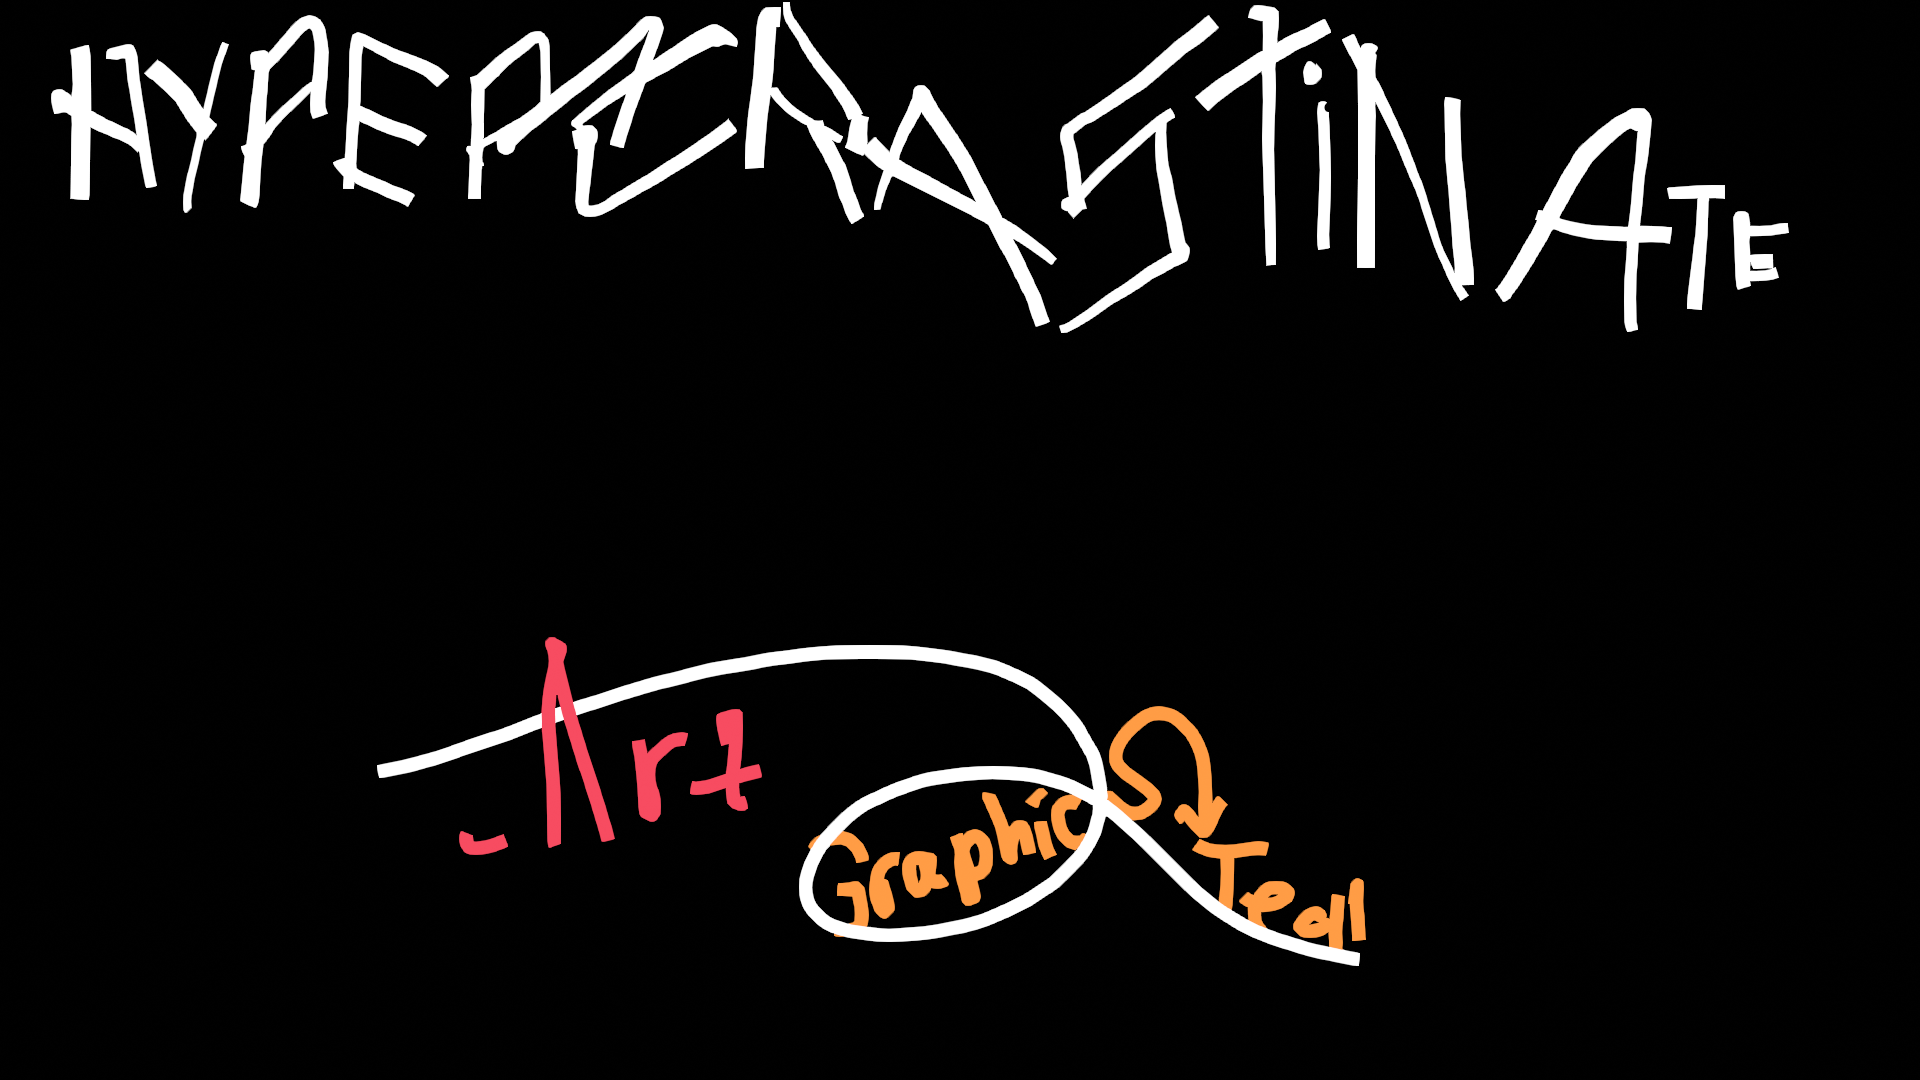 HYPERCRASTiNATE
Art
Graphics
Teal